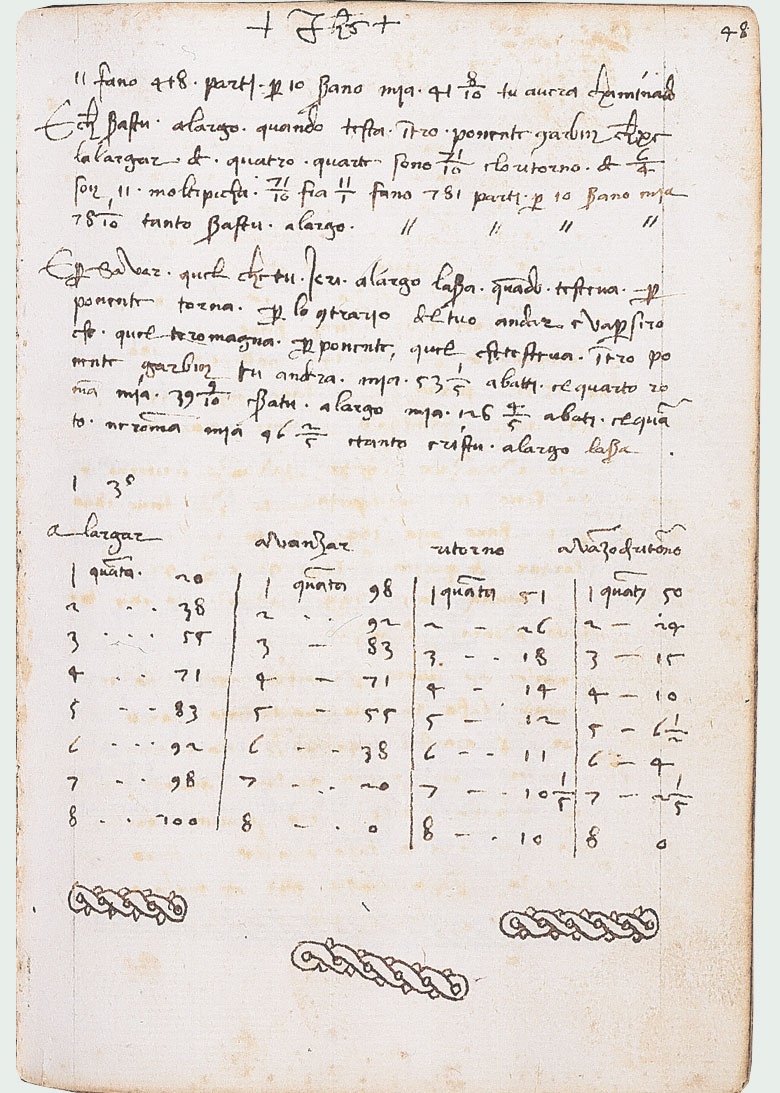 + Jhs +
48
11 fano 418 · parti · p 10 zano mia · 41 8/10 tu avera chaminado
E ch sastu · alargo · quando testa · itro · ponente garbin
lalargar · de · quatro · quarte sono 71/10 elo ritorno · de 6/4
son · 11 · moltipicha · 71/10 fia 11/1 fano 781 parti · p 10 zano mia
78 1/10 tanto sastu · alargo · // // // //
E p savar · quel che tu · Ieri · alargo · quado · testeva · p
ponente torna · p lo contrario del tuo andar e va p siro
che · quel teromagna · p ponente, quel che testeva · itro po
nente garbin tu andera · mia · 53 1/5 abati · el quarto ro
man mia · 39 9/10 · alargo mia · 126 4/5 abati · el qua
to · ne roman mia 46 2/5 e tanto · alargo
1 3
a largar avanzar ritorno avazo de ritorno
1 quarta · 20 1 quarta 98 1 quarta 51 1 quarta 50
2 · · · 38 2 · · 92 2 - 26 2 - 24
3 · · · 55 3 - 83 3 · - · 18 3 - 15
4 · · · 71 4 - 71 4 - 14 4 - 10
5 · · 83 5 - 55 5 - 12 5 - 6 1/2
6 · · · 92 6 · · 38 6 - - 11 6 - 4
7 · · 98 7 - · 20 7 - · 10 1/5 7 - 2 1/5
8 · · · 100 8 - · 0 8 - · 10 8 0